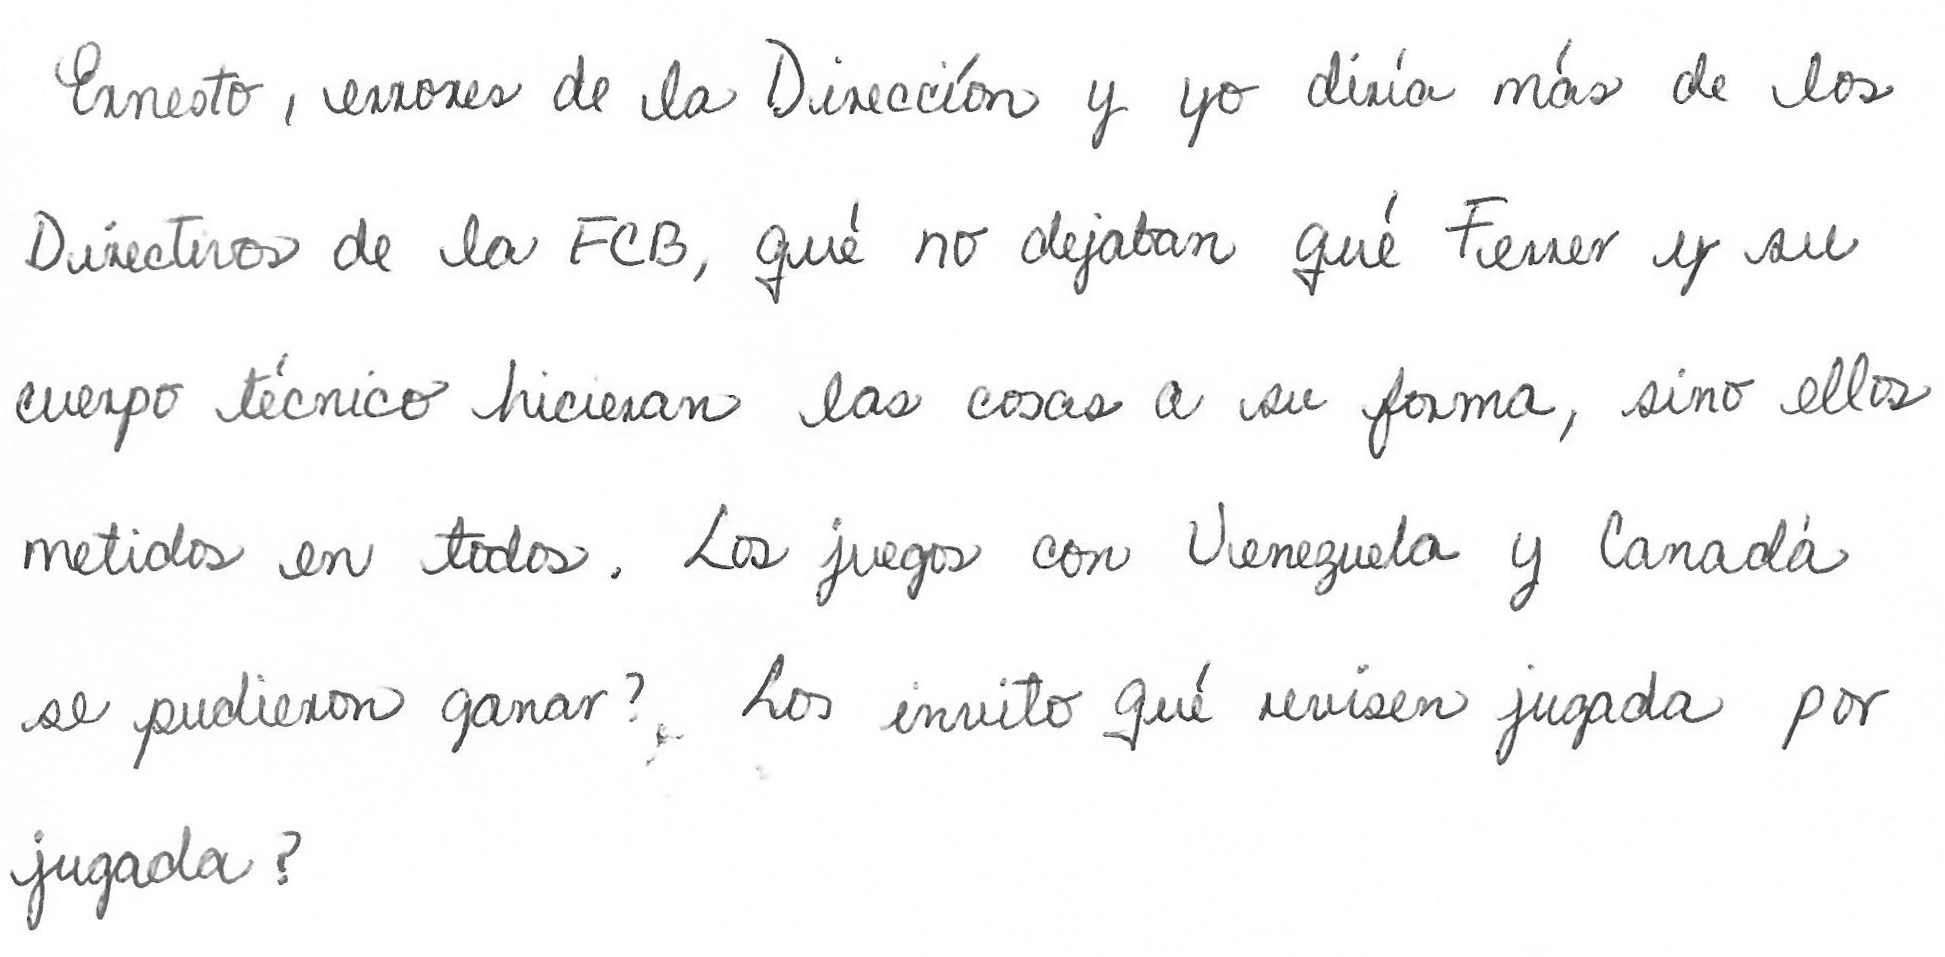 Ernesto, errores de la Dirección y yo diría más de los
Directivos de la FCB, qué no dejaban qué Ferrer y su
cuerpo técnico hicieran las cosas a su forma, sino ellos
metidos en todos. Los juegos con Venezuela y Canadá
se pudieron ganar?, Los invito qué revisen jugada por
jugada?